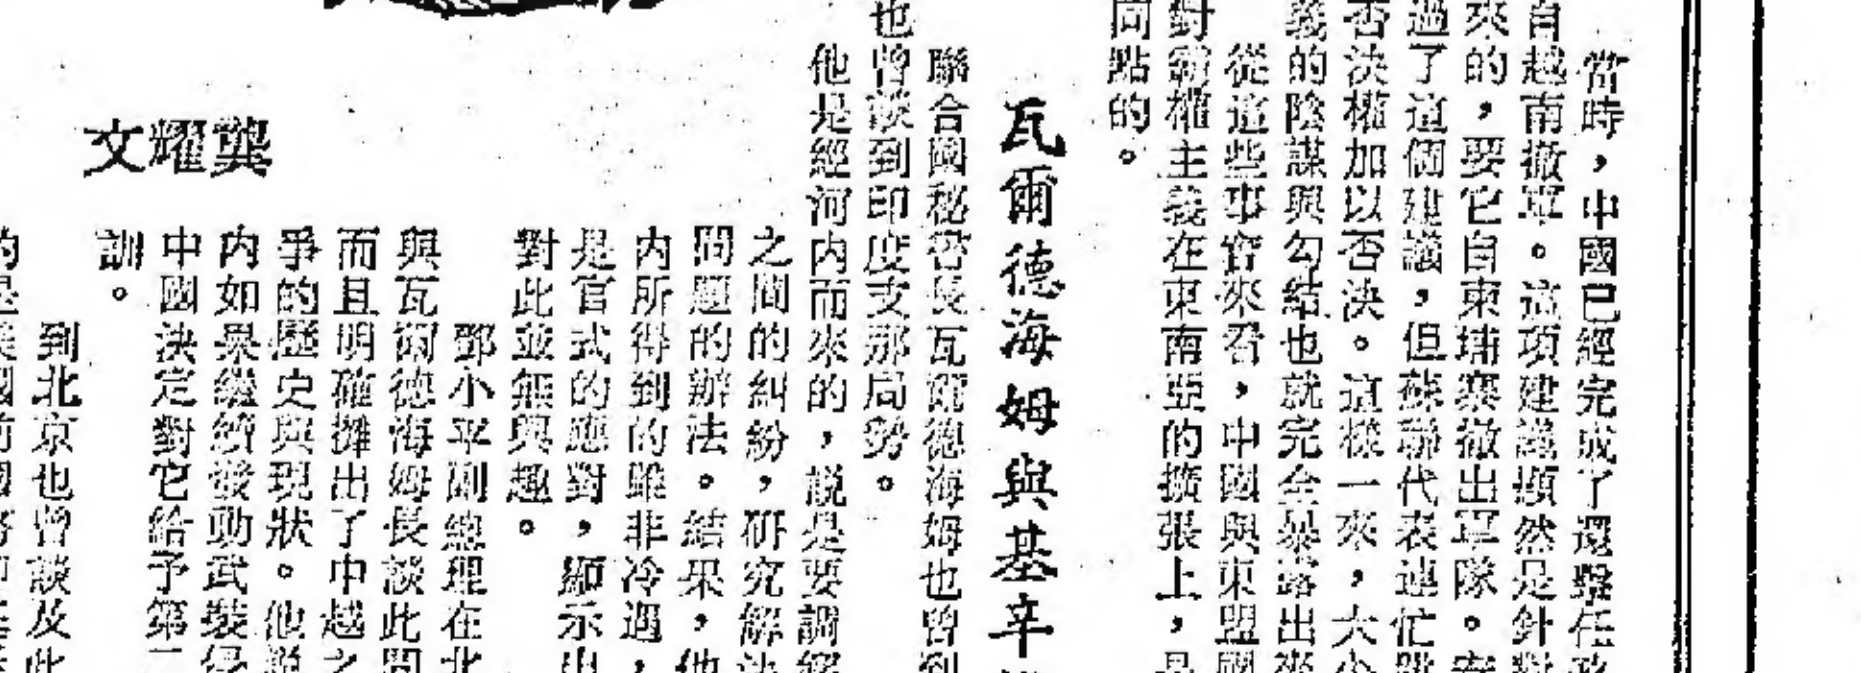 當時，中國已經完成了還擊任務
自越南撤軍。這項建議顯然是針對
來的，要它自柬埔寨撤出軍隊。安
過了這個建議，但蘇聯代表連忙跳
否決權加以否決。這樣一來，大小
義的陰謀與勾結也就完全暴露出來
從這些事實來看，中國與東盟國
對霸權主義在東南亞的擴張上，是
同點的。
瓦爾德海姆與基辛
聯合國秘書長瓦爾德海姆也曾到
也曾談到印度支那局勢。
他是經河内而來的，説是要調解
之間的糾紛，研究解決
問題的辦法。結果，他
内所得到的雖非冷遇，
是官式的應對，顯示出
對此並無興趣。
鄧小平副總理在北
與瓦爾德海姆長談此問
而且明確攤出了中越之
爭的歷史與現狀。他説
内如果繼續發動武裝侵
中國決定對它給予第二
訓。
龔耀文
到北京也曾談及此